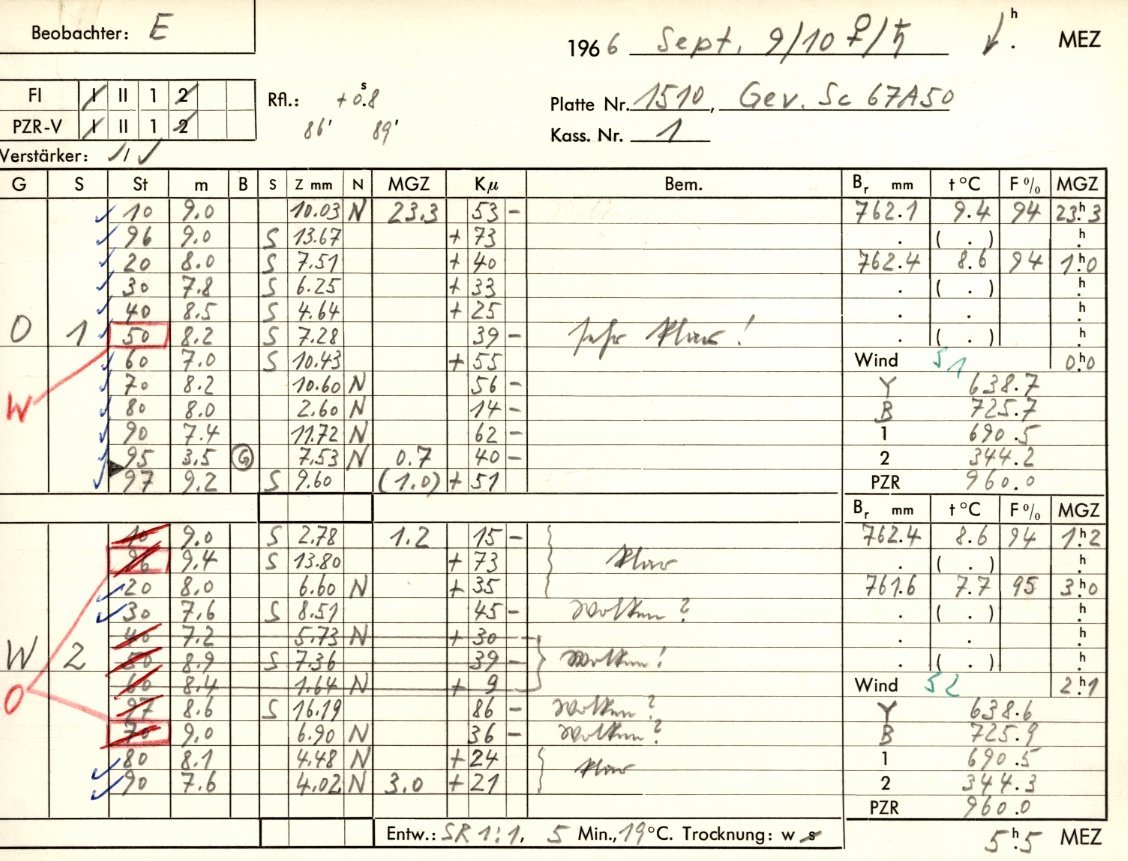 Beobachter: E
1966 Sept. 9/10 ♀/♄ h . MEZ
FI I II 1 2
PZR-V I II 1 2
Rfl.: +0.8 s
86' 89'
Platte Nr. 1510, Gev. Sc 67A50
Kass. Nr. 1
Verstärker: II
G S St m B S Z mm N MGZ Kμ Bem. Br mm t °C F % MGZ
10 9.0 10.03 N 23.3 53 - 762.1 9.4 94 23h3
96 9.0 S 13.67 + 73 . ( . ) h.
20 8.0 S 7.51 + 40 762.4 8.6 94 1h0
30 7.8 S 6.25 + 33 . ( . ) h.
40 8.5 S 4.64 + 25 . . h.
O 1 50 8.2 S 7.28 39 - Sehr klar! . ( . ) h.
60 7.0 S 10.43 + 55 Wind S1 0h0
70 8.2 10.60 N 56 - Y 638.7
W 80 8.0 2.60 N 14 - B 725.7
90 7.4 11.72 N 62 - 1 690.5
95 3.5 G 7.53 N 0.7 40 - 2 344.2
97 9.2 S 9.60 (1.0) + 51 PZR 960.0
Br mm t °C F % MGZ
10 9.0 S 2.78 1.2 15 - 762.4 8.6 94 1h2
96 9.4 S 13.80 + 73 klar . ( . ) h.
20 8.0 6.60 N + 35 761.6 7.7 95 3h0
30 7.6 S 8.51 45 - Wolken? . ( . ) h.
40 7.2 5.73 N + 30 . . h.
W 2 50 8.9 S 7.36 39 - Wolken! . ( . ) h.
O 60 8.4 1.64 N + 9 Wind S2 2h1
97 8.6 S 16.19 86 - Wolken? Y 638.6
70 9.0 6.90 N 36 - Wolken? B 725.9
80 8.1 4.48 N + 24 klar 1 690.5
90 7.6 4.02 N 3.0 + 21 2 344.3
PZR 960.0
Entw.: SR 1:1, 5 Min., 19 °C. Trocknung: w s 5h5 MEZ